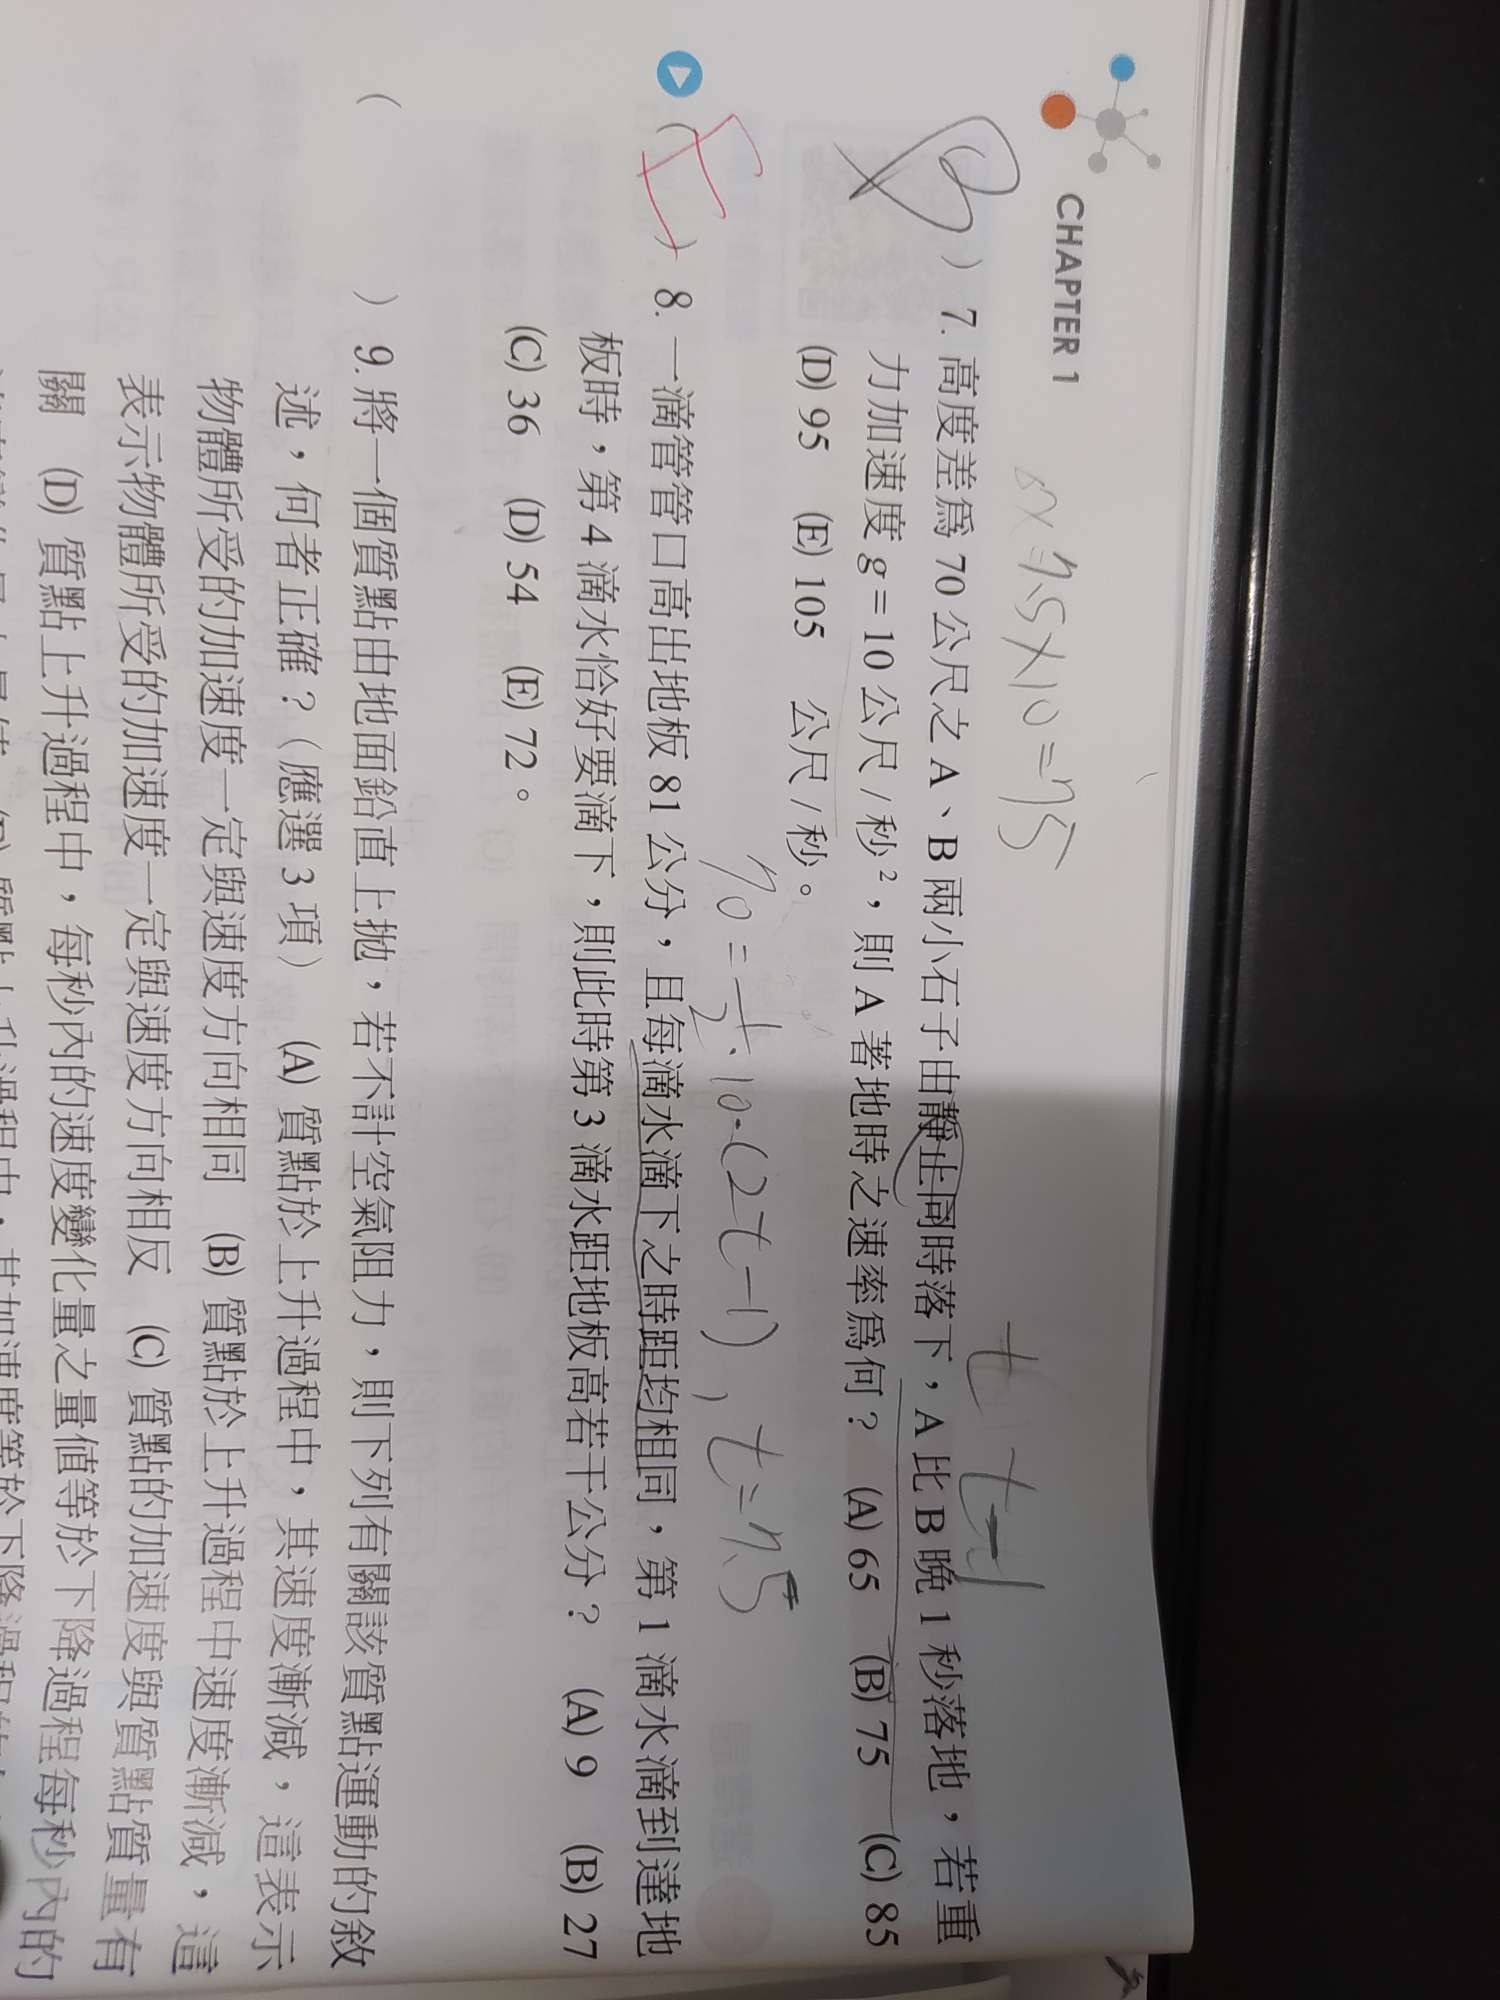 CHAPTER 1
δx = 7.5×10 = 75
t t-1
B ) 7. 高度差為 70 公尺之 A、B 兩小石子由靜止同時落下，A 比 B 晚 1 秒落地，若重
力加速度 g = 10 公尺 / 秒²，則 A 著地時之速率為何？ (A) 65 (B) 75 (C) 85
(D) 95 (E) 105 公尺 / 秒。
70 = 1/2 · 10 · (2t-1), t = 7.5
( E ) 8. 一滴管管口高出地板 81 公分，且每滴水滴下之時距均相同，第 1 滴水滴到達地
板時，第 4 滴水恰好要滴下，則此時第 3 滴水距地板高若干公分？ (A) 9 (B) 27
(C) 36 (D) 54 (E) 72。
( ) 9. 將一個質點由地面鉛直上拋，若不計空氣阻力，則下列有關該質點運動的敘
述，何者正確？（應選 3 項） (A) 質點於上升過程中，其速度漸減，這表示
物體所受的加速度一定與速度方向相同 (B) 質點於上升過程中速度漸減，這
表示物體所受的加速度一定與速度方向相反 (C) 質點的加速度與質點質量有
關 (D) 質點上升過程中，每秒內的速度變化量之量值等於下降過程每秒內的